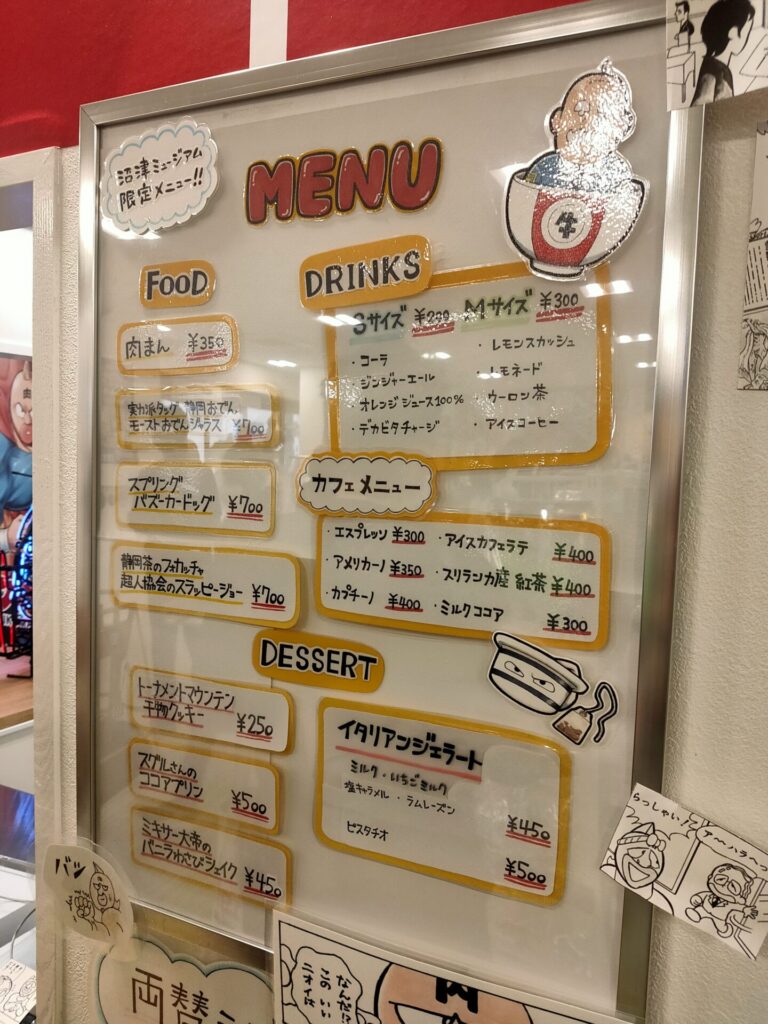 沼津ミュージアム
限定メニュー!!
MENU
牛
FOOD
肉まん ¥350
実力派タッグ 静岡おでん、
モーストおでんジャラス ¥700
スプリング
バズーカードッグ ¥700
静岡茶のフォカッチャ
超人協会のスラッピージョー ¥700
DRINKS
Sサイズ ¥200 Mサイズ ¥300
・コーラ
・ジンジャーエール
・オレンジジュース100%
・デカビタチャージ
・レモンスカッシュ
・レモネード
・ウーロン茶
・アイスコーヒー
カフェメニュー
・エスプレッソ ¥300
・アメリカーノ ¥350
・カプチーノ ¥400
・アイスカフェラテ ¥400
・スリランカ産 紅茶 ¥400
・ミルクココア ¥300
DESSERT
トーナメントマウンテン
干物クッキー ¥250
スグルさんの
ココアプリン ¥500
ミキサー大帝の
バニラわさびシェイク ¥450
イタリアンジェラート
ミルク・いちごミルク
塩キャラメル・ラムレーズン
¥450
ピスタチオ
¥500
らっしゃい!
ア〜ハラ〜
バッ
両替
なんだ!?
このいい
ニオイは
肉